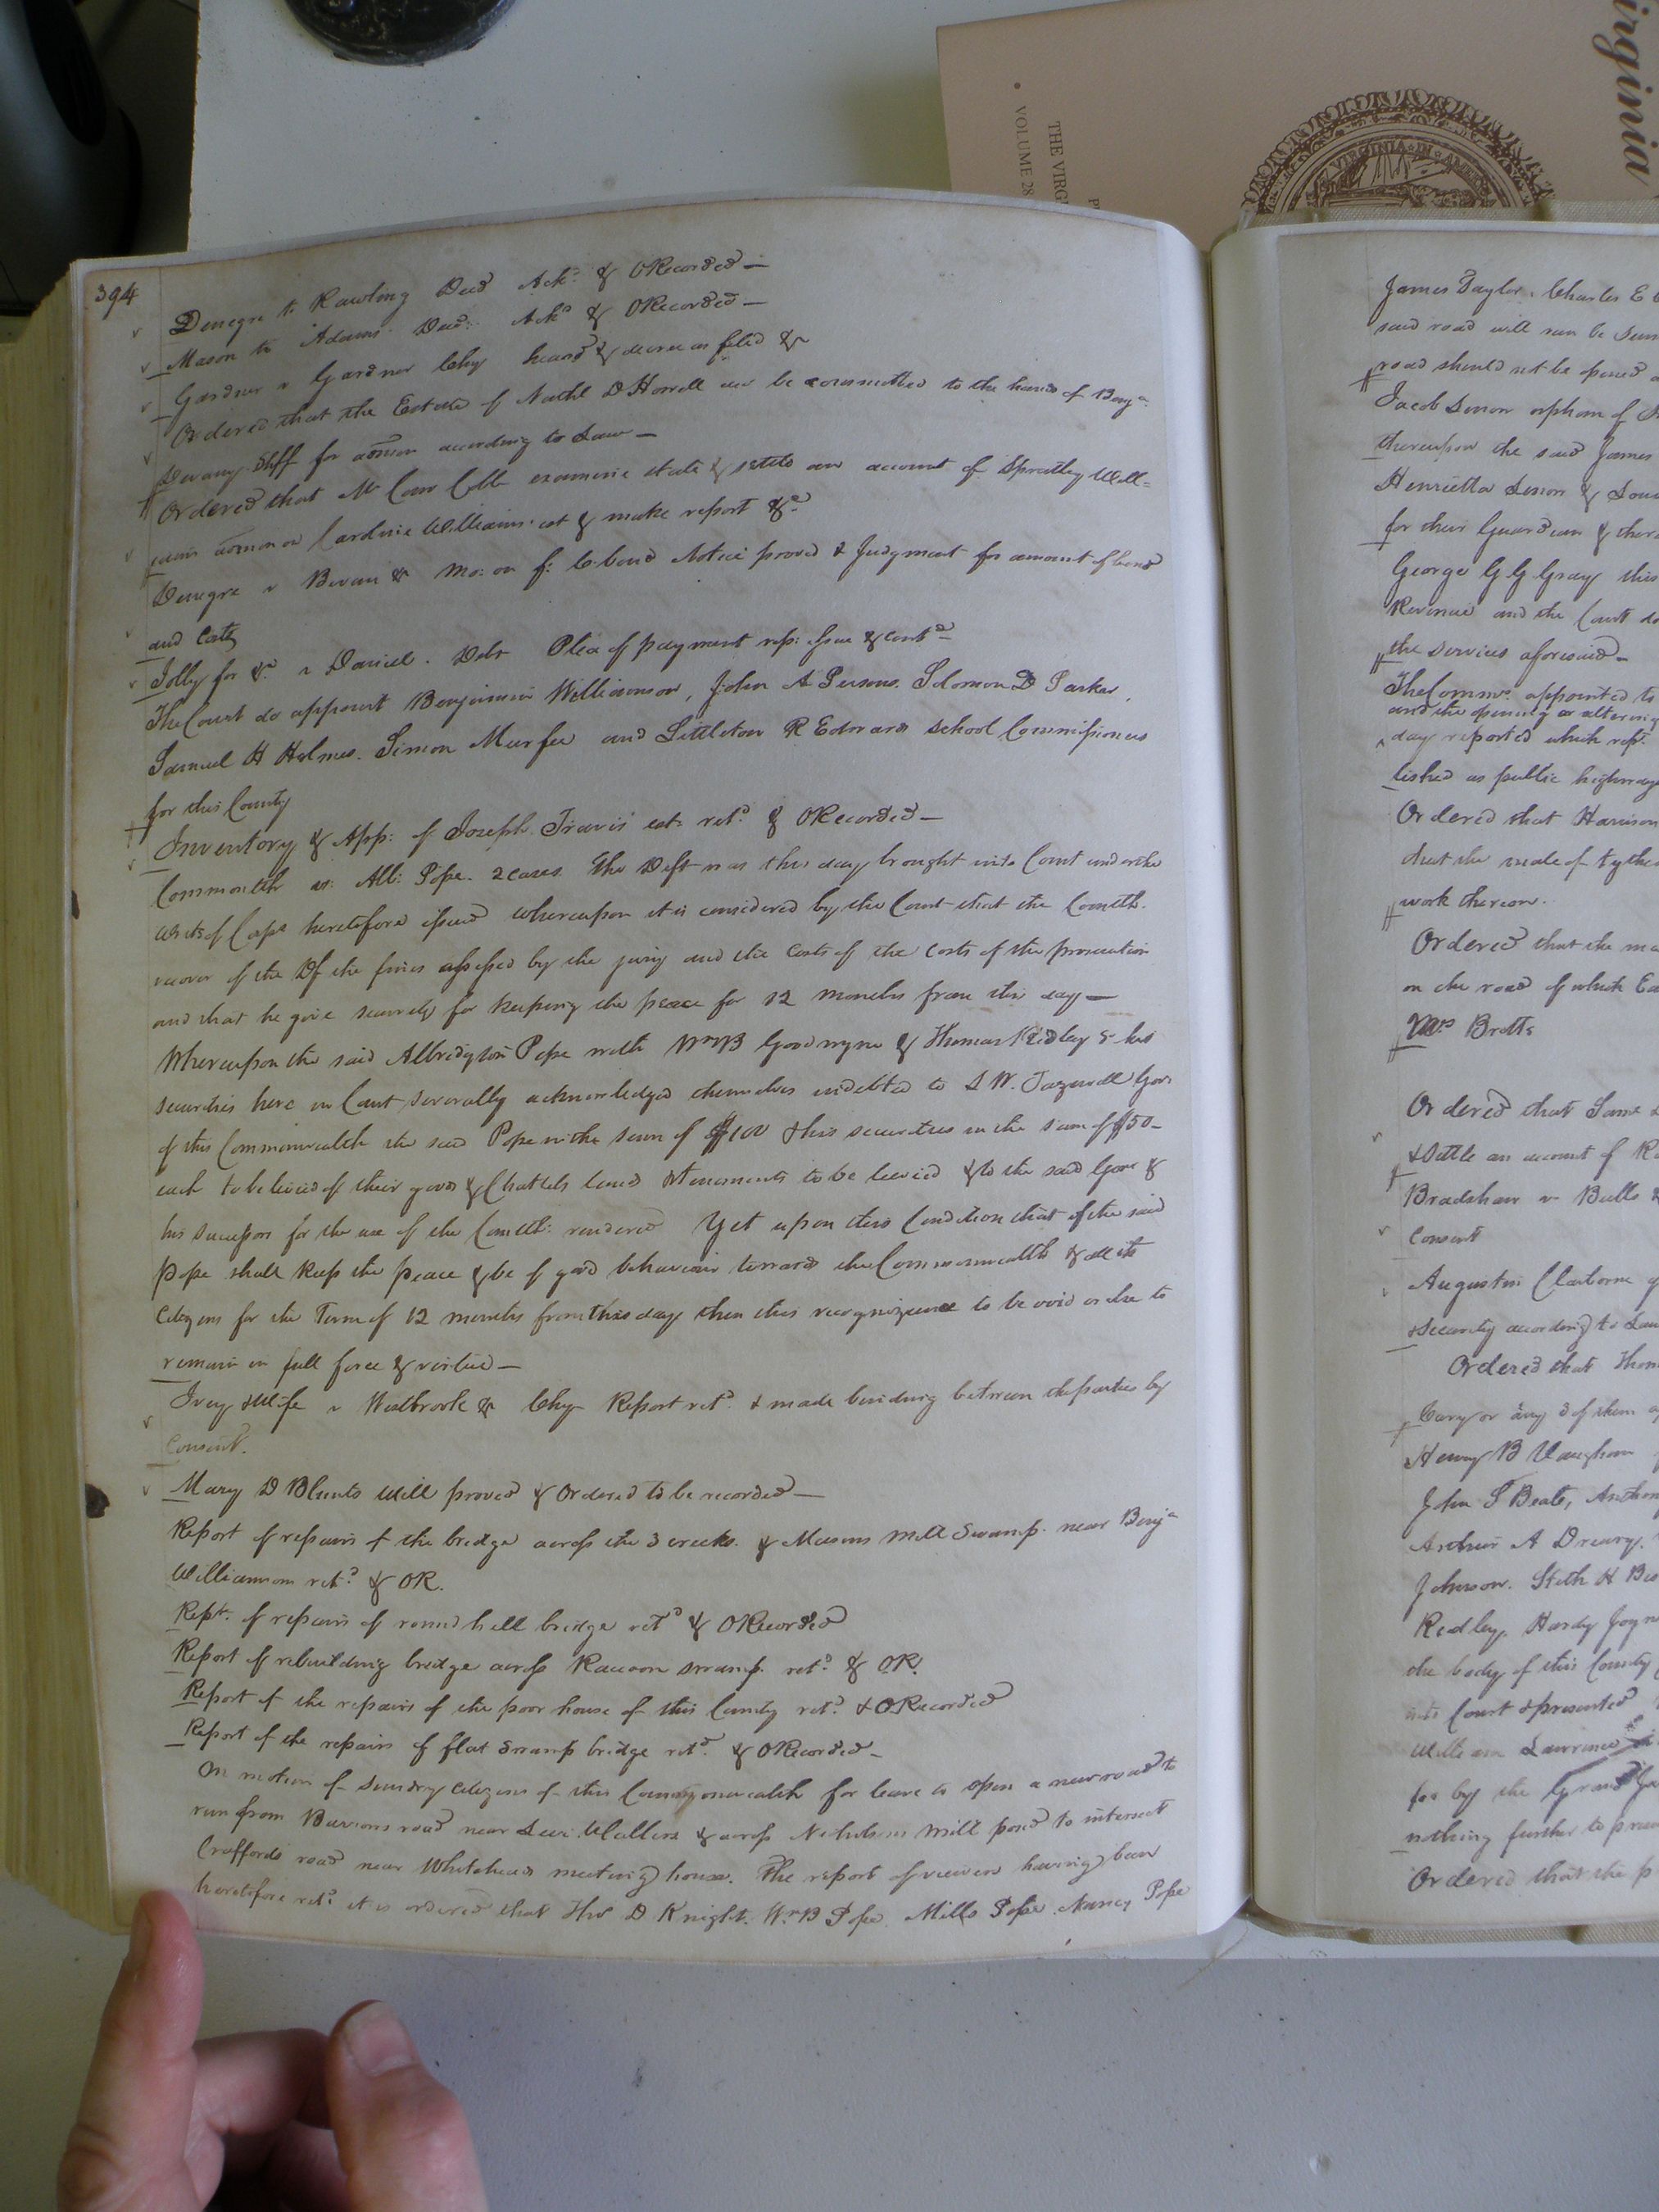 irginia
THE VIRG
VOLUME 28
VIRGINIA IN AME
394
Denegre to Rawlong Deed Ackd. & ORecorded —
Mason to Adams Deed: Ackd & ORecorded —
Gardner v Gardner Chy heard & decree as filed &
Ordered that the Estate of Nathl D Howell dec be committed to the hands of Benja.
Devany Shff for admon according to Law —
Ordered that Mr Cobb examine state & settle an account of Spratley Will=
iams admon on Caroline Williams' est & make report &c
Denegre v Bevan & Mo: on f: b: bond Notice proved & Judgment for amount of bond
and Costs
Jolly for &c v Daniel. Debt Plea of payment rep: Issue & contd —
The Court do appoint Benjamin Williamson, John A Persons. Solomon D Parker,
Samuel H Holmes. Simon Murfee and Littleton R Edwards School Commissioners
for this County
Inventory & App: of Joseph Travis' est: retd. & ORecorded —
Commonlth vs: Alb: Pope. 2 cases. The Deft was this day brought into Court under the
writs of Capa heretofore issued whereupon it is considered by the Court that the Comlth.
recover of the Df the fines assessed by the jury and the costs of the costs of the prosecution
and that he give security for keeping the peace for 12 months from this day —
Whereupon the said Albridgton Pope with Wm B Goodwyn & Thomas Ridley Sr his
securities here in Court severally acknowledged themselves indebted to L W. Tazewell Gov:
of this Commonwealth the said Pope in the sum of $100 & his securities in the sum of $50 —
each to be levied of their goods & Chattels lands & tenements to be levied & to the said Gove &
his successors for the use of the Comlth: rendered Yet upon this Condition that if the said
Pope shall keep the peace & be of good behaviour towards the Commonwealth & all its
Citizens for the Term of 12 months from this day then this recognizance to be void or else to
remain in full force & virtue —
Ivey & Wife v Westbrook & Chy Report retd. & made binding between the parties by
Consent.
Mary D Blunts Will proved & Ordered to be recorded —
Report of repairs of the bridge across the 3 creeks. & Masons Mill Swamp. near Benja
Williamson retd. & OR.
Rept. of repairs of round hill bridge retd & ORecorded
Report of rebuilding bridge across Racoon swamp. retd. & OR.
Report of the repairs of the poor house of this County retd. & ORecorded
Report of the repairs of flat Swamp bridge retd. & ORecorded —
On motion of sundry citizens of this Commonwealth for leave to open a new road to
run from Barrons road near Levi Wallers & across Nicholsons Mill pond to intersect
Croffords road near Whiteheads meeting house. The report of viewers having been
heretofore retd. it is ordered that Thos D Knight. Wm B Pope. Mills Pope. Nancy Pope
James Taylor. Charles E
said road will run be Sum
road should not be opened
Jacob Simon orphan of
thereupon the said James
Henrietta Simon & Lou
for their Guardian & there
George G G Gray this
Revenue and the Court do
the services aforesaid —
The Comms. appointed to
and the opening or altering
day reported which rept.
lished as public highway
Ordered that Harrison
that the male of tythe
work thereon.
Ordered that the ma
on the road of which Ed
Mrs Britts
Ordered that Saml
& Settle an account of R
Bradshaw v Bulls &
Consent
Augustin Claiborne
& Security according to Law
Ordered that Thom
Cary or any 3 of them
Henry B Vaughan
John S Beale, Anthony
Arthur A Drewry.
Johnson. Stith H Bis
Ridley. Hardy Joyne
the body of this County
into Court & presented
William Lawrence
for by the Grand Ju
nothing further to pres
Ordered that the p